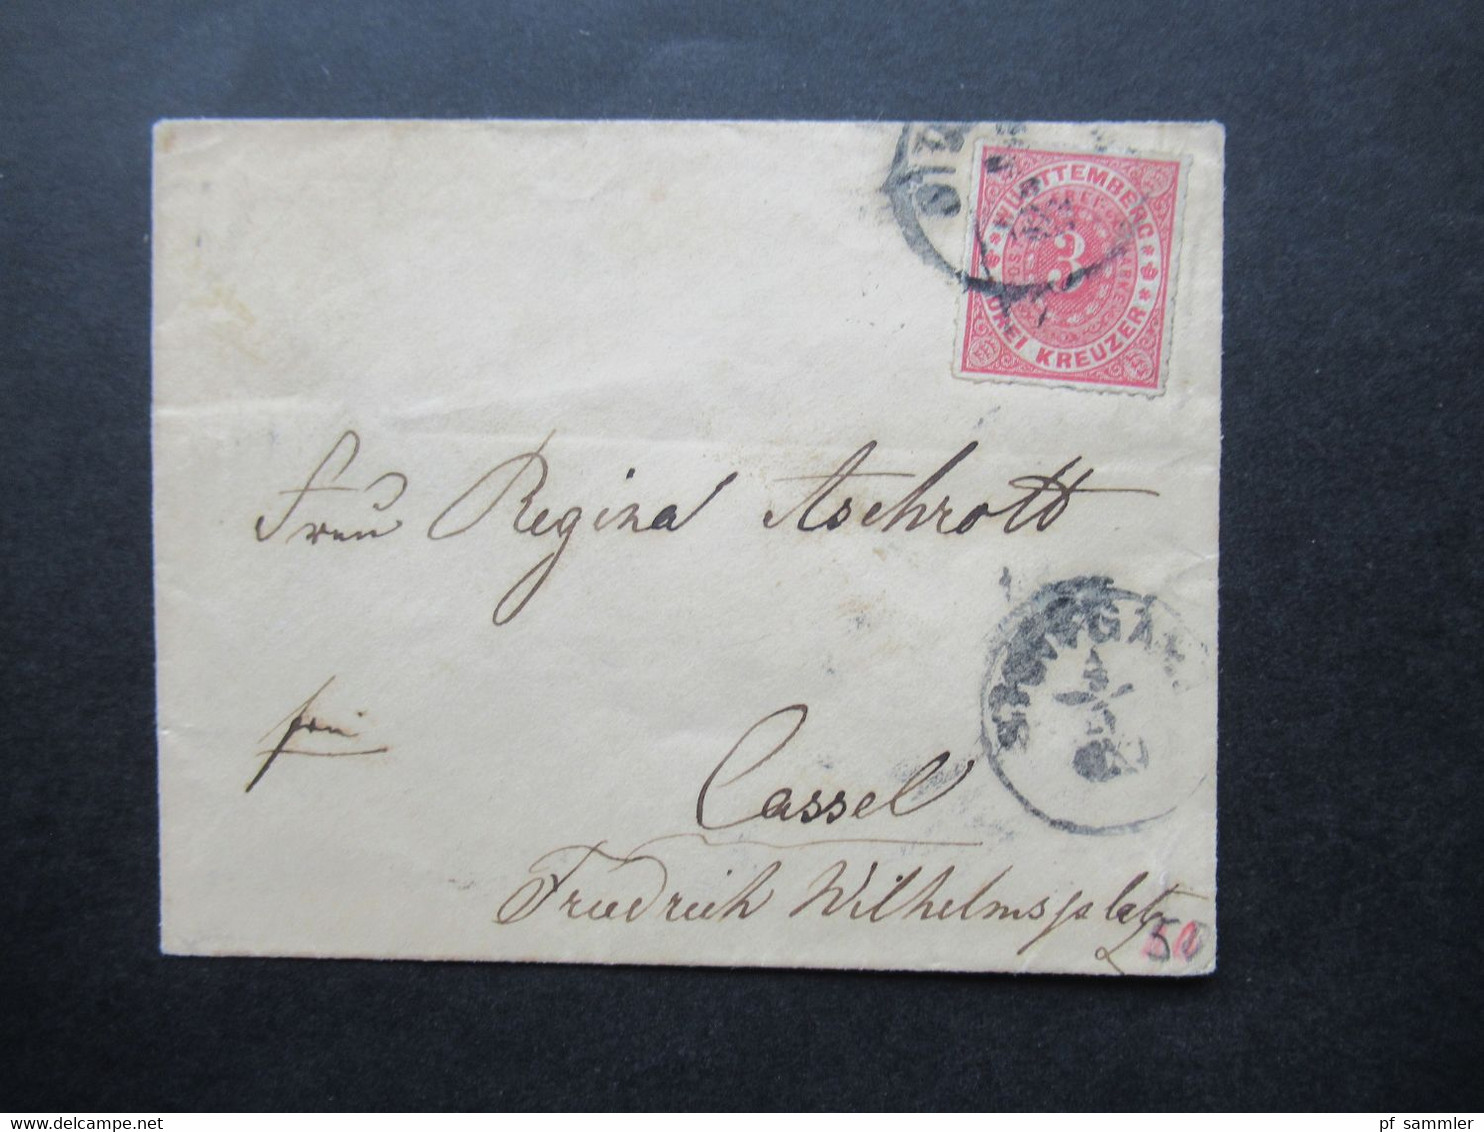 WÜRTTEMBERG
POSTFREIMARKE
3
DREI KREUZER
Frau Regina Aschrott
STUTTGART
frei
Cassel
Friedrich Wilhelmsplatz
50
www.delcampe.net
pf_sammler